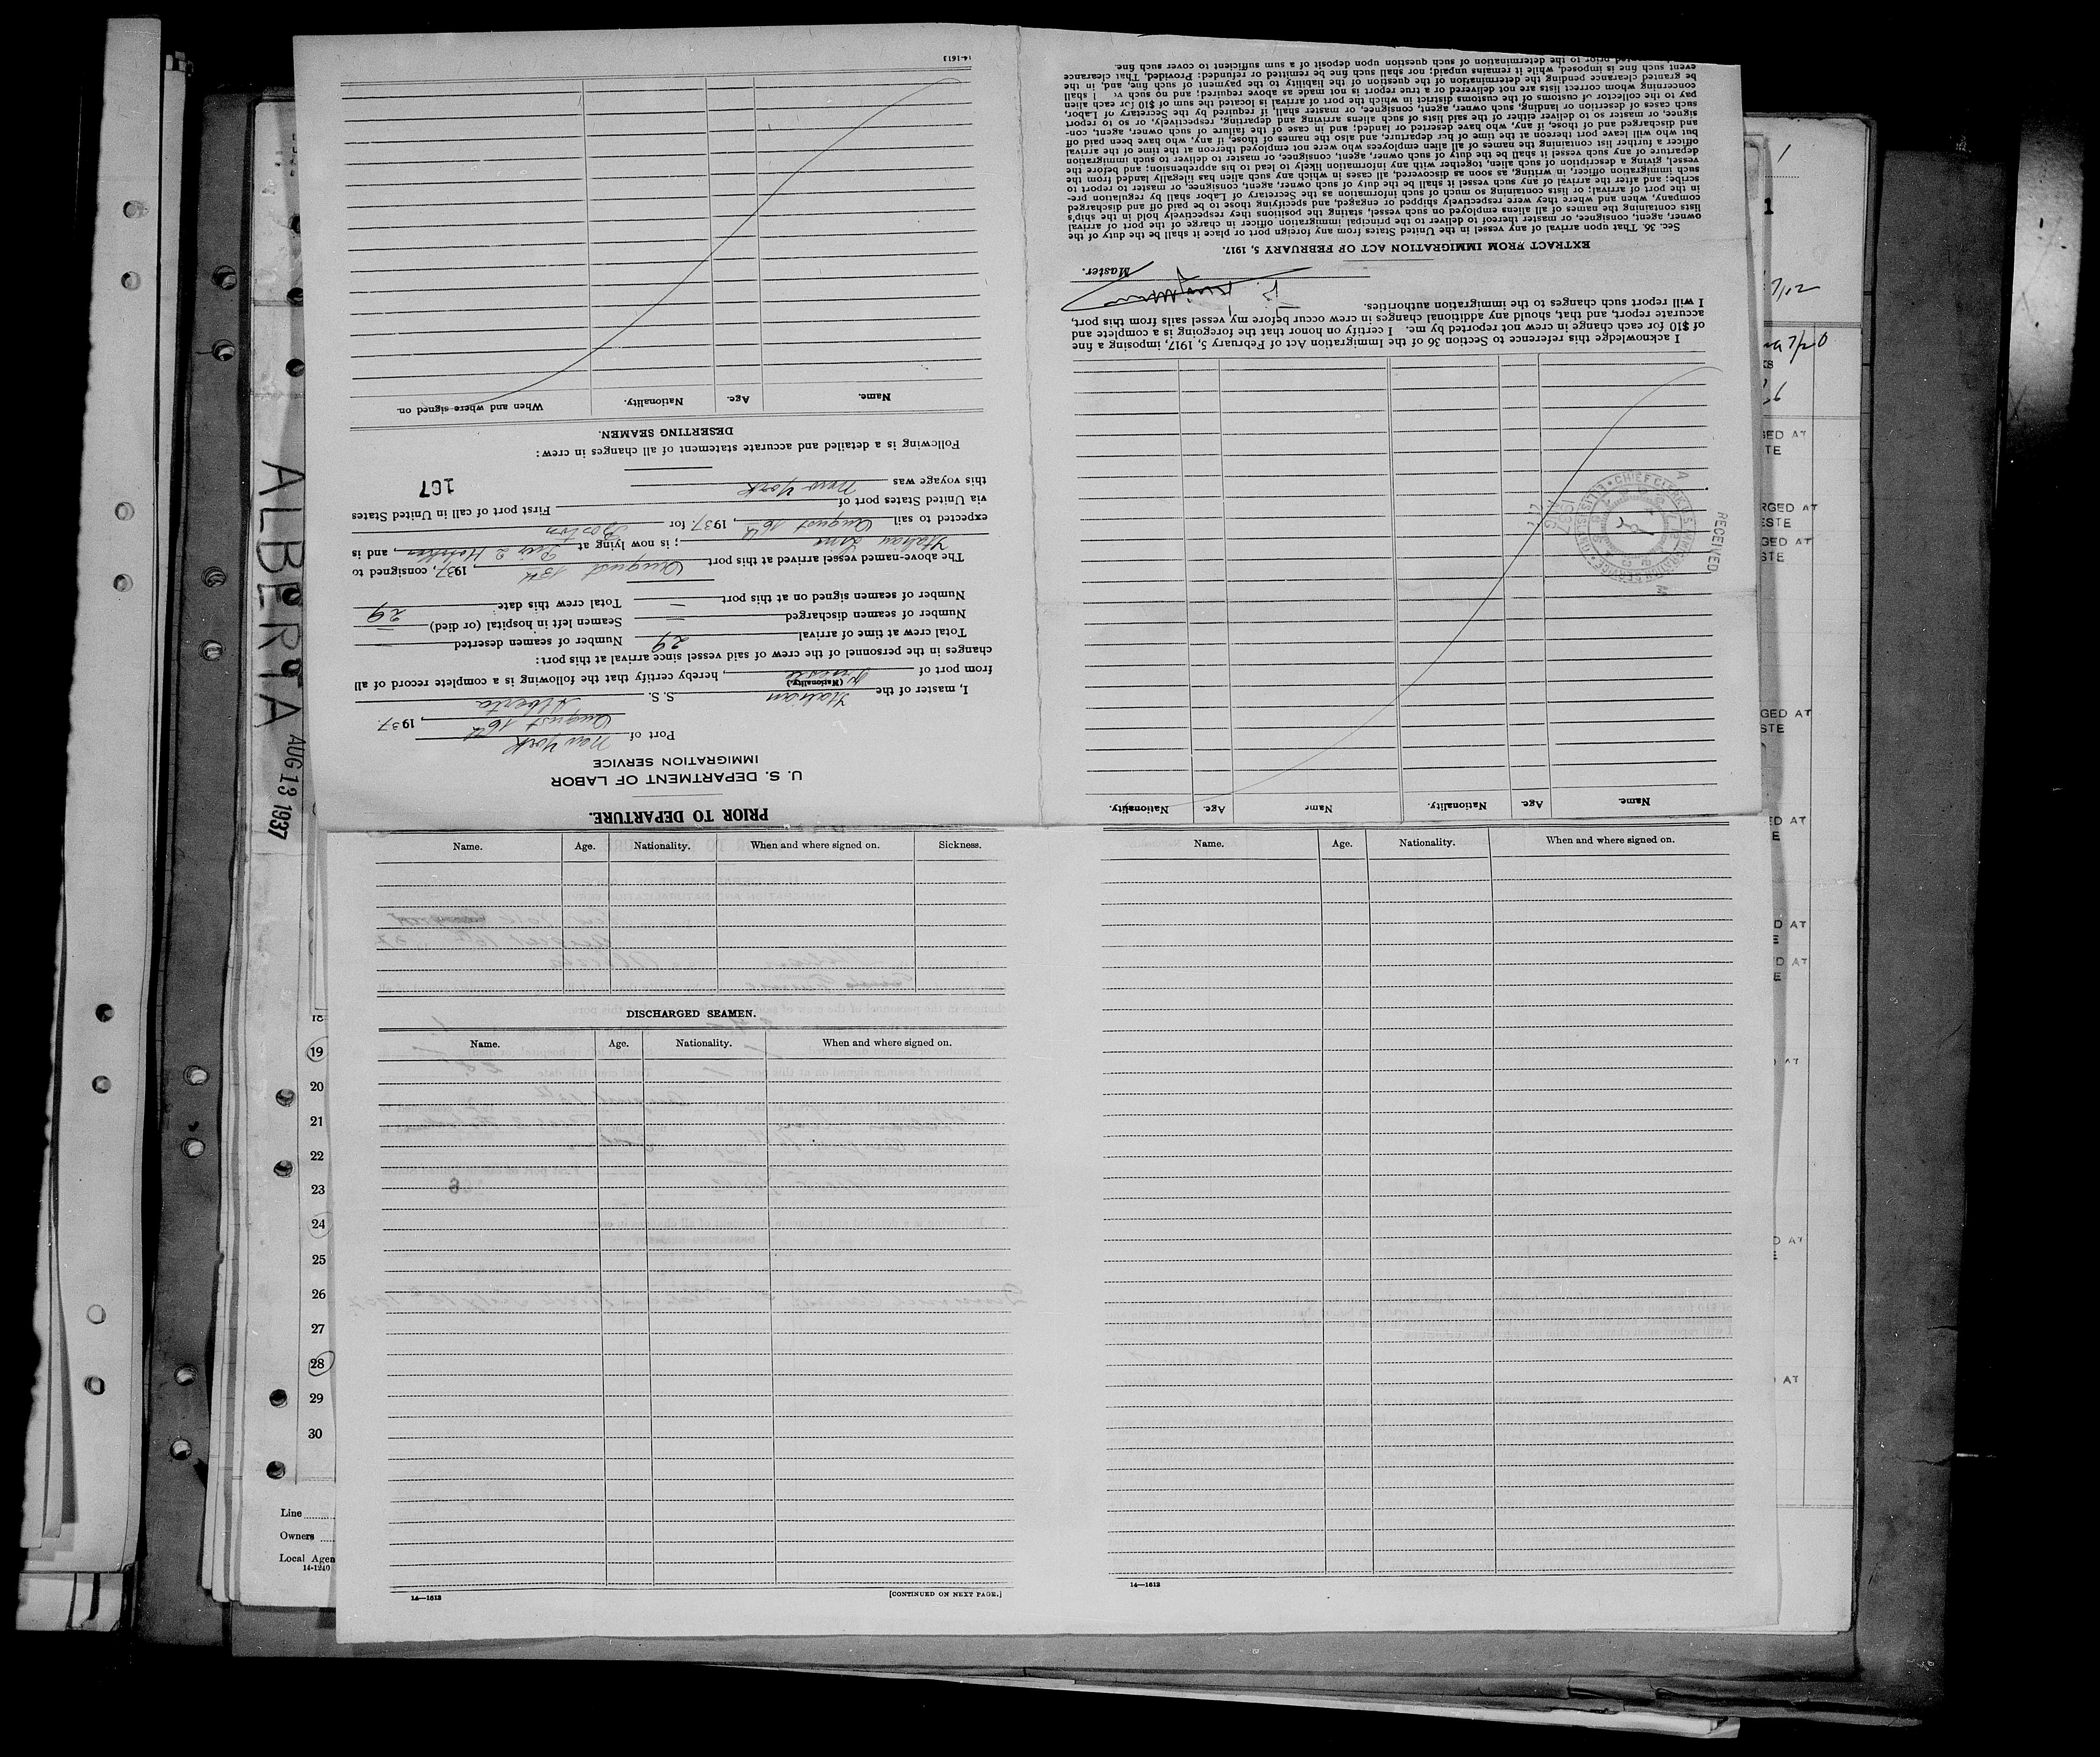 PRIOR TO DEPARTURE.
U. S. DEPARTMENT OF LABOR
IMMIGRATION SERVICE
Port of New York
August 16th, 1937.
I, master of the Italian S. S. Alberta
(Nationality.)
from port of Trieste, hereby certify that the following is a complete record of all
changes in the personnel of the crew of said vessel since arrival at this port:
Total crew at time of arrival 29 Number of seamen deserted —
Number of seamen discharged — Seamen left in hospital (or died) —
Number of seamen signed on at this port — Total crew this date 29
The above-named vessel arrived at this port August 13th, 1937, consigned to
Italian Line; is now lying at Pier 2 Hoboken, and is
expected to sail August 16th, 1937, for Boston
via United States port of First port of call in United States
this voyage was New York 167
Following is a detailed and accurate statement of all changes in crew:
DESERTING SEAMEN.
Name. Age. Nationality. When and where signed on.
14-1613
Name. Age. Nationality. Name Age. Nationality.
RECEIVED
CHIEF CLERK U.S. IMMIGRATION SERVICE ELLIS ISL.
I acknowledge this reference to Section 36 of the Immigration Act of February 5, 1917, imposing a fine
of $10 for each change in crew not reported by me. I certify on honor that the foregoing is a complete and
accurate report, and that, should any additional changes in crew occur before my vessel sails from this port,
I will report such changes to the immigration authorities.
Master.
EXTRACT FROM IMMIGRATION ACT OF FEBRUARY 5, 1917.
Sec. 36. That upon arrival of any vessel in the United States from any foreign port or place it shall be the duty of the
owner, agent, consignee, or master thereof to deliver to the principal immigration officer in charge of the port of arrival
lists containing the names of all aliens employed on such vessel, stating the positions they respectively hold in the ship's
company, when and where they were respectively shipped or engaged, and specifying those to be paid off and discharged
in the port of arrival; or lists containing so much of such information as the Secretary of Labor shall by regulation pre-
scribe; and after the arrival of any such vessel it shall be the duty of such owner, agent, consignee, or master to report to
such immigration officer, in writing, as soon as discovered, all cases in which any such alien has illegally landed from the
vessel, giving a description of such alien, together with any information likely to lead to his apprehension; and before the
departure of any such vessel it shall be the duty of such owner, agent, consignee, or master to deliver to such immigration
officer a further list containing the names of all alien employees who were not employed thereon at the time of the arrival
but who will leave port thereon at the time of her departure, and also the names of those, if any, who have been paid off
and discharged and of those, if any, who have deserted or landed; and in case of the failure of such owner, agent, con-
signee, or master so to deliver either of the said lists of such aliens arriving and departing, respectively, or so to report
such cases of desertion or landing, such owner, agent, consignee, or master shall, if required by the Secretary of Labor,
pay to the collector of customs of the customs district in which the port of arrival is located the sum of $10 for each alien
concerning whom correct lists are not delivered or a true report is not made as above required; and no such v shall
be granted clearance pending the determination of the question of the liability to the payment of such fine, and, in the
event such fine is imposed, while it remains unpaid; nor shall such fine be remitted or refunded: Provided, That clearance
prior to the determination of such question upon deposit of a sum sufficient to cover such fine.
ALBERTA AUG 13 1937
Name. Age. Nationality. When and where signed on. Sickness.
DISCHARGED SEAMEN.
Name. Age. Nationality. When and where signed on.
14—1613
[CONTINUED ON NEXT PAGE.]
Name. Age. Nationality. When and where signed on.
14—1613
19
20
21
22
23
24
25
26
27
28
29
30
Line
Owners
Local Agen
14-1240